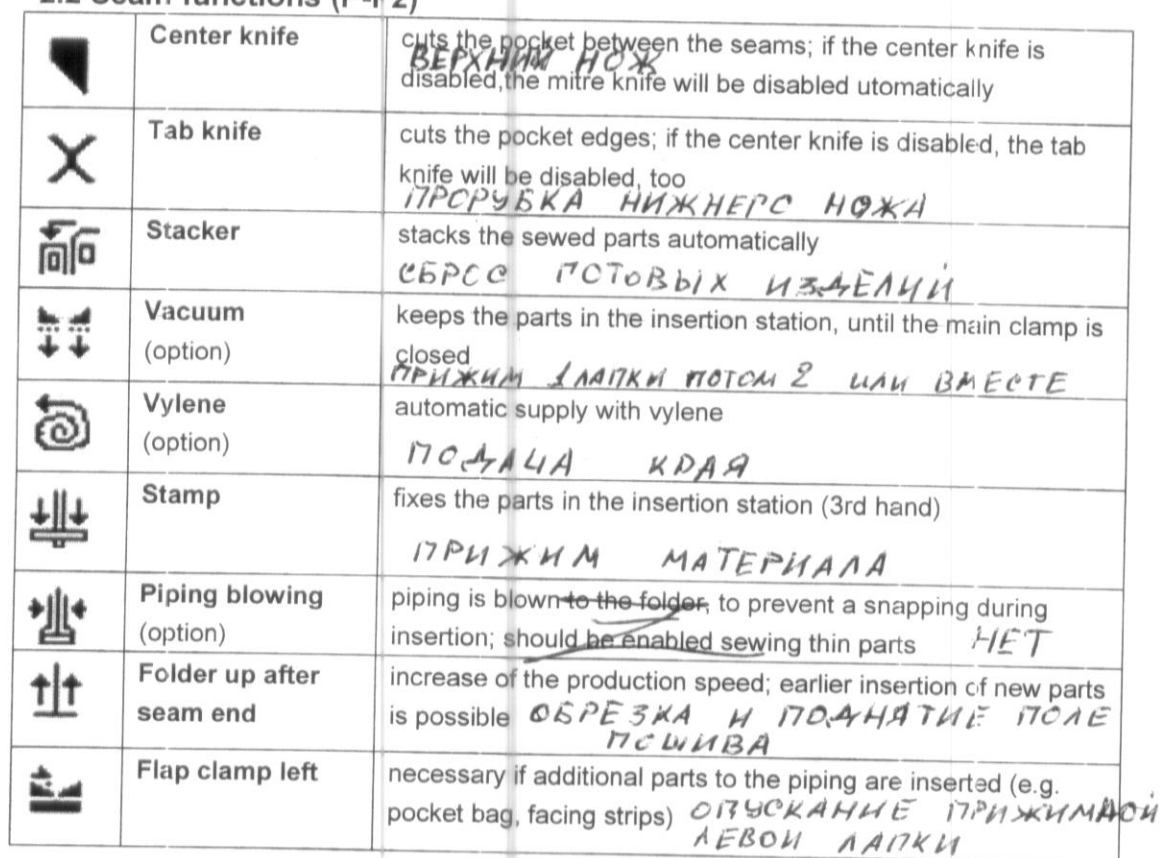 2.2 Seam functions (F-F2)
Center knife
cuts the pocket between the seams; if the center knife is
ВЕРХНИЙ НОЖ
disabled,the mitre knife will be disabled utomatically
Tab knife
cuts the pocket edges; if the center knife is disabled, the tab
knife will be disabled, too
ПРОРУБКА НИЖНЕГО НОЖА
Stacker
stacks the sewed parts automatically
СБРОС ГОТОВЫХ ИЗДЕЛИЙ
Vacuum
(option)
keeps the parts in the insertion station, until the main clamp is
closed
ПРИЖИМ 1 ЛАПКИ ПОТОМ 2 ИЛИ ВМЕСТЕ
Vylene
(option)
automatic supply with vylene
ПОДАЧА КРАЯ
Stamp
fixes the parts in the insertion station (3rd hand)
ПРИЖИМ МАТЕРИАЛА
Piping blowing
(option)
piping is blown to the folder, to prevent a snapping during
insertion; should be enabled sewing thin parts НЕТ
Folder up after
seam end
increase of the production speed; earlier insertion of new parts
is possible ОБРЕЗКА И ПОДНЯТИЕ ПОЛЕ
ПОШИВА
Flap clamp left
necessary if additional parts to the piping are inserted (e.g.
pocket bag, facing strips) ОПУСКАНИЕ ПРИЖИМНОЙ
ЛЕВОЙ ЛАПКИ